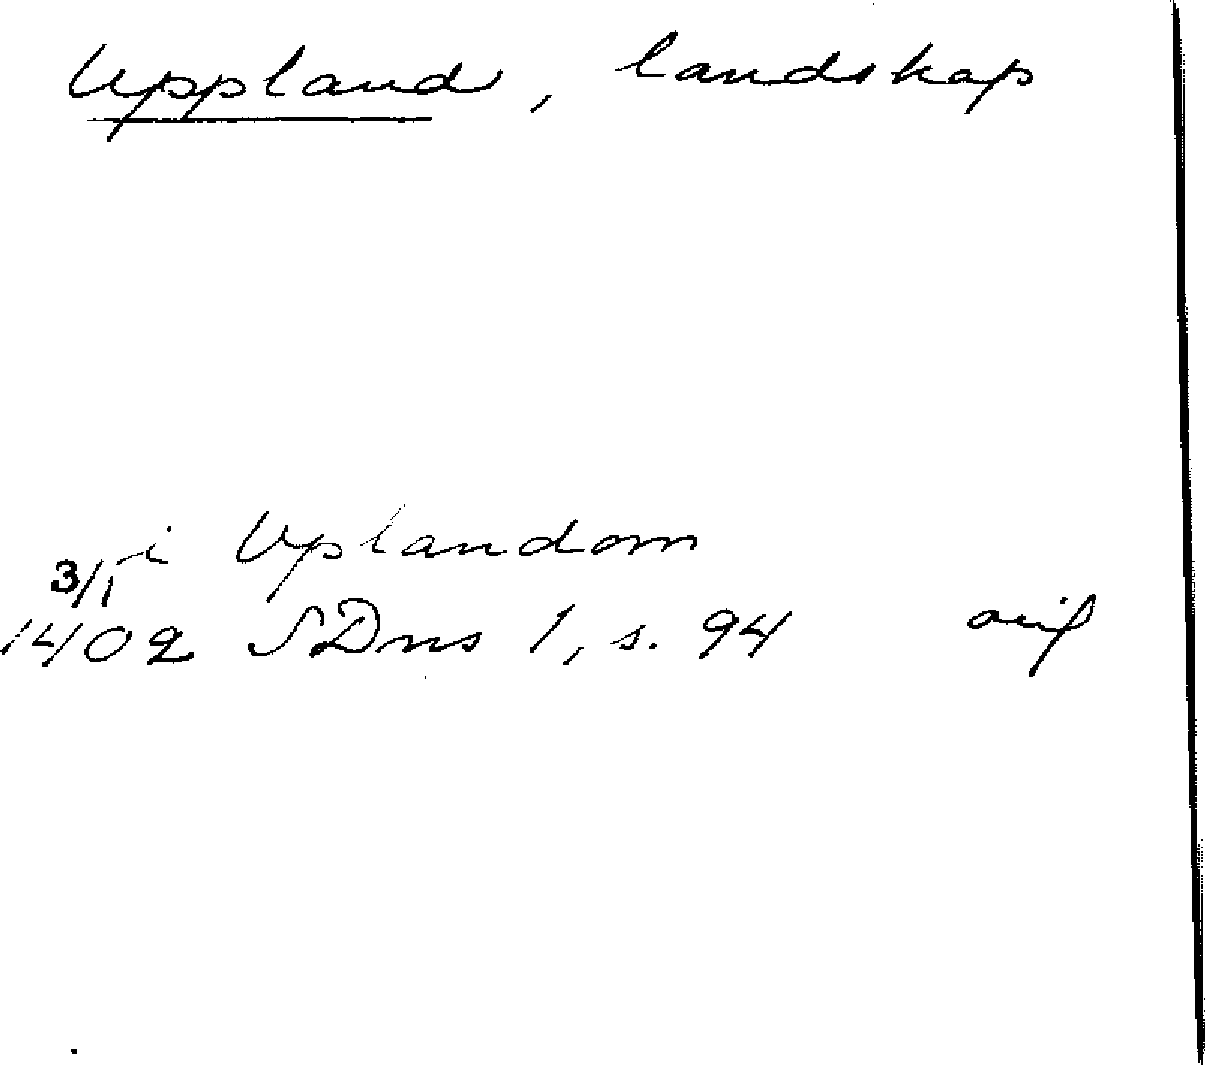 Uppland, landskap
i Uplandom
3/1
1402 SDns 1, s. 94 orig